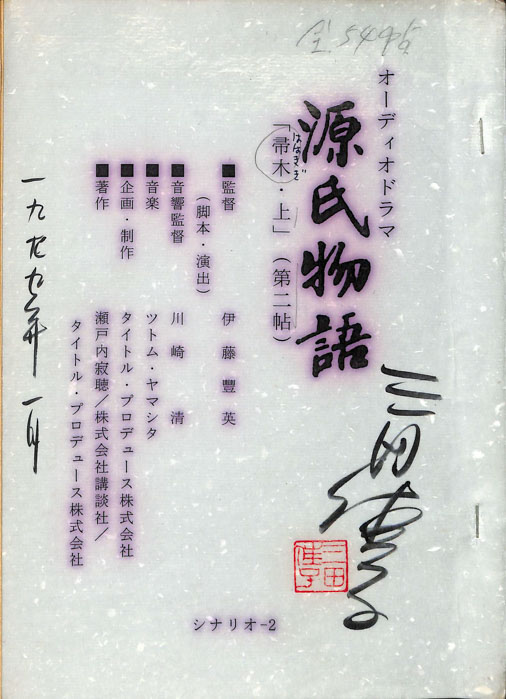 全54帖
オーディオドラマ
源氏物語
ははきぎ
「帚木・上」（第二帖）
■監督　伊藤豐英
（脚本・演出）
■音響監督　川崎清
■音楽　ツトム・ヤマシタ
■企画・制作　タイトル・プロデュース株式会社
■著作　瀬戸内寂聴／株式会社講談社／
タイトル・プロデュース株式会社
一九九九年 一月
三田佳子
三田佳子
シナリオ-2